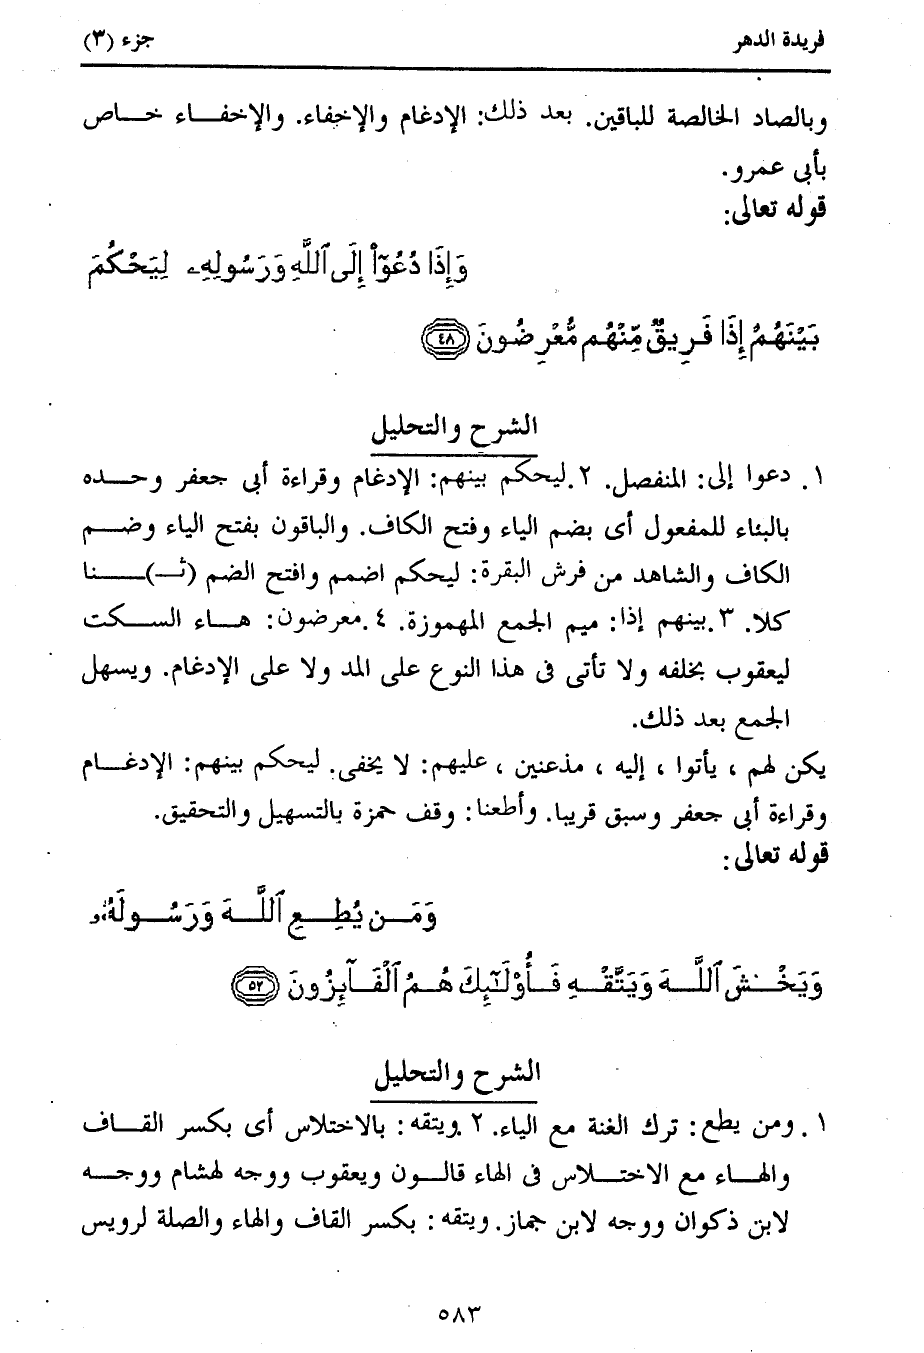 فريدة الدهر جزء (٣)
وبالصاد الخالصة للباقين. بعد ذلك: الإدغام والإخفاء. والإخفـــاء خـــاص
بأبى عمرو.
قوله تعالى:
وَإِذَا دُعُوٓا۟ إِلَى ٱللَّهِ وَرَسُولِهِۦ لِيَحْكُمَ
بَيْنَهُمْ إِذَا فَرِيقٌ مِّنْهُم مُّعْرِضُونَ ٤٨
الشرح والتحليل
١. دعوا إلى: المنفصل. ٢.ليحكم بينهم: الإدغام وقراءة أبى جعفر وحـــده
بالبناء للمفعول أى بضم الياء وفتح الكاف. والباقون بفتح الياء وضـــم
الكاف والشاهد من فرش البقرة: ليحكم اضمم وافتح الضم (ثـــ)ـــنا
كلا. ٣.بينهم إذا: ميم الجمع المهموزة. ٤.معرضون: هـــاء الســـكت
ليعقوب بخلفه ولا تأتى فى هذا النوع على المد ولا على الإدغام. ويسهل
الجمع بعد ذلك.
يكن لهم ، يأتوا ، إليه ، مذعنين ، عليهم: لا يخفى. ليحكم بينهم: الإدغـــام
وقراءة أبى جعفر وسبق قريبا. وأطعنا: وقف حمزة بالتسهيل والتحقيق.
قوله تعالى:
وَمَـــن يُطِـــعِ ٱللَّـــهَ وَرَسُـــولَهُۥ
وَيَخْـــشَ ٱللَّـــهَ وَيَتَّقْـــهِ فَـــأُو۟لَـٰٓئِكَ هُـــمُ ٱلْفَـــآئِزُونَ ٥٢
الشرح والتحليل
١. ومن يطع: ترك الغنة مع الياء. ٢.ويتقه: بالاختلاس أى بكسر القـــاف
والهـــاء مع الاختـــلاس فى الهاء قالـــون ويعقوب ووجه لهشام ووجـــه
لابن ذكوان ووجه لابن جماز. ويتقه: بكسر القاف والهاء والصلة لرويس
٥٨٣